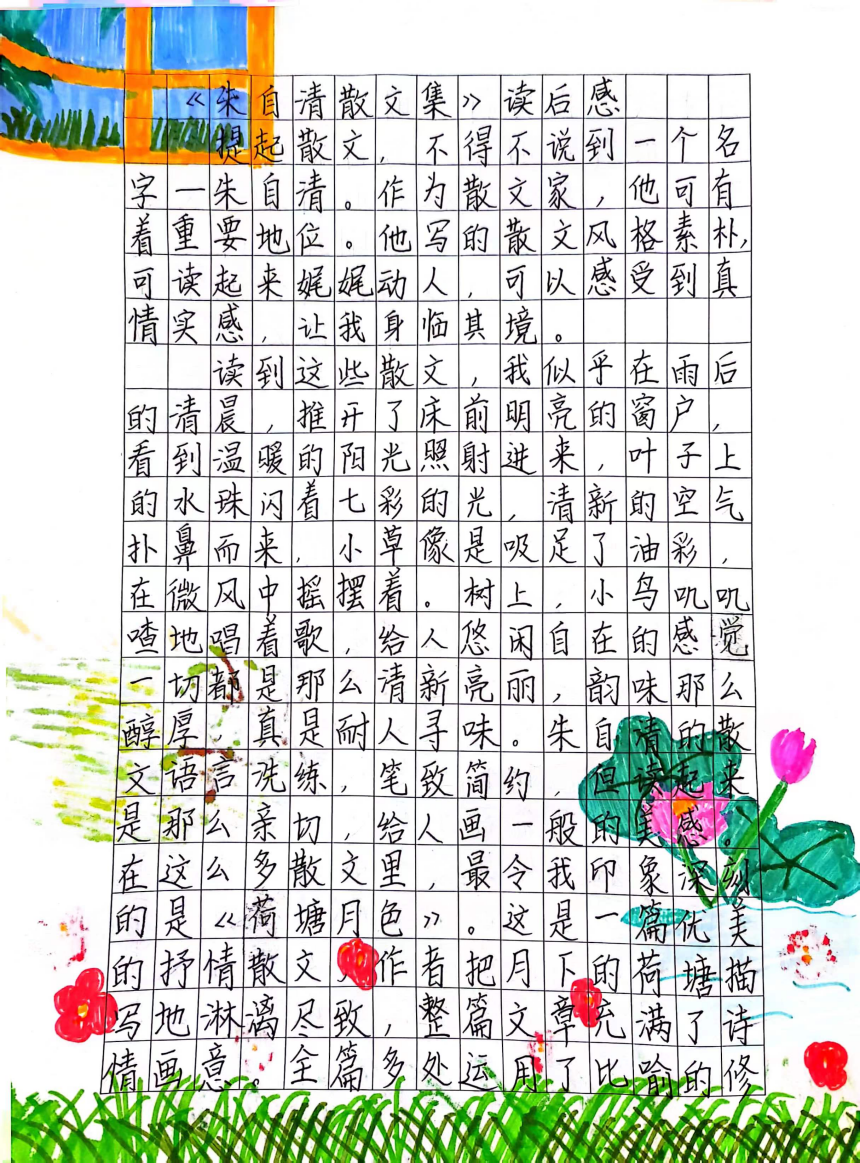 《朱自清散文集》读后感
提起散文，不得不说到一个名
字一朱自清。作为散文家，他可有
着重要地位。他写的散文风格素朴，
可读起来娓娓动人，可以感受到真
情实感，让我身临其境。
读到这些散文，我似乎在雨后
的清晨，推开了床前明亮的窗户，
看到温暖的阳光照射进来，叶子上
的水珠闪着七彩的光，清新的空气
扑鼻而来，小草像是吸足了油彩，
在微风中摇摆着。树上，小鸟叽叽
喳地唱着歌，给人悠闲自在的感觉
一切都是那么清新亮丽，韵味那么
醇厚，真是耐人寻味。朱自清的散
文语言洗练，笔致简约，但读起来
是那么亲切，给人画一般的美感。
在这么多散文里，最令我印象深刻
的是《荷塘月色》。这是一篇优美
的抒情散文，作者把月下的荷塘描
写地淋漓尽致，整篇文章充满了诗
情画意。全篇多处运用了比喻的修